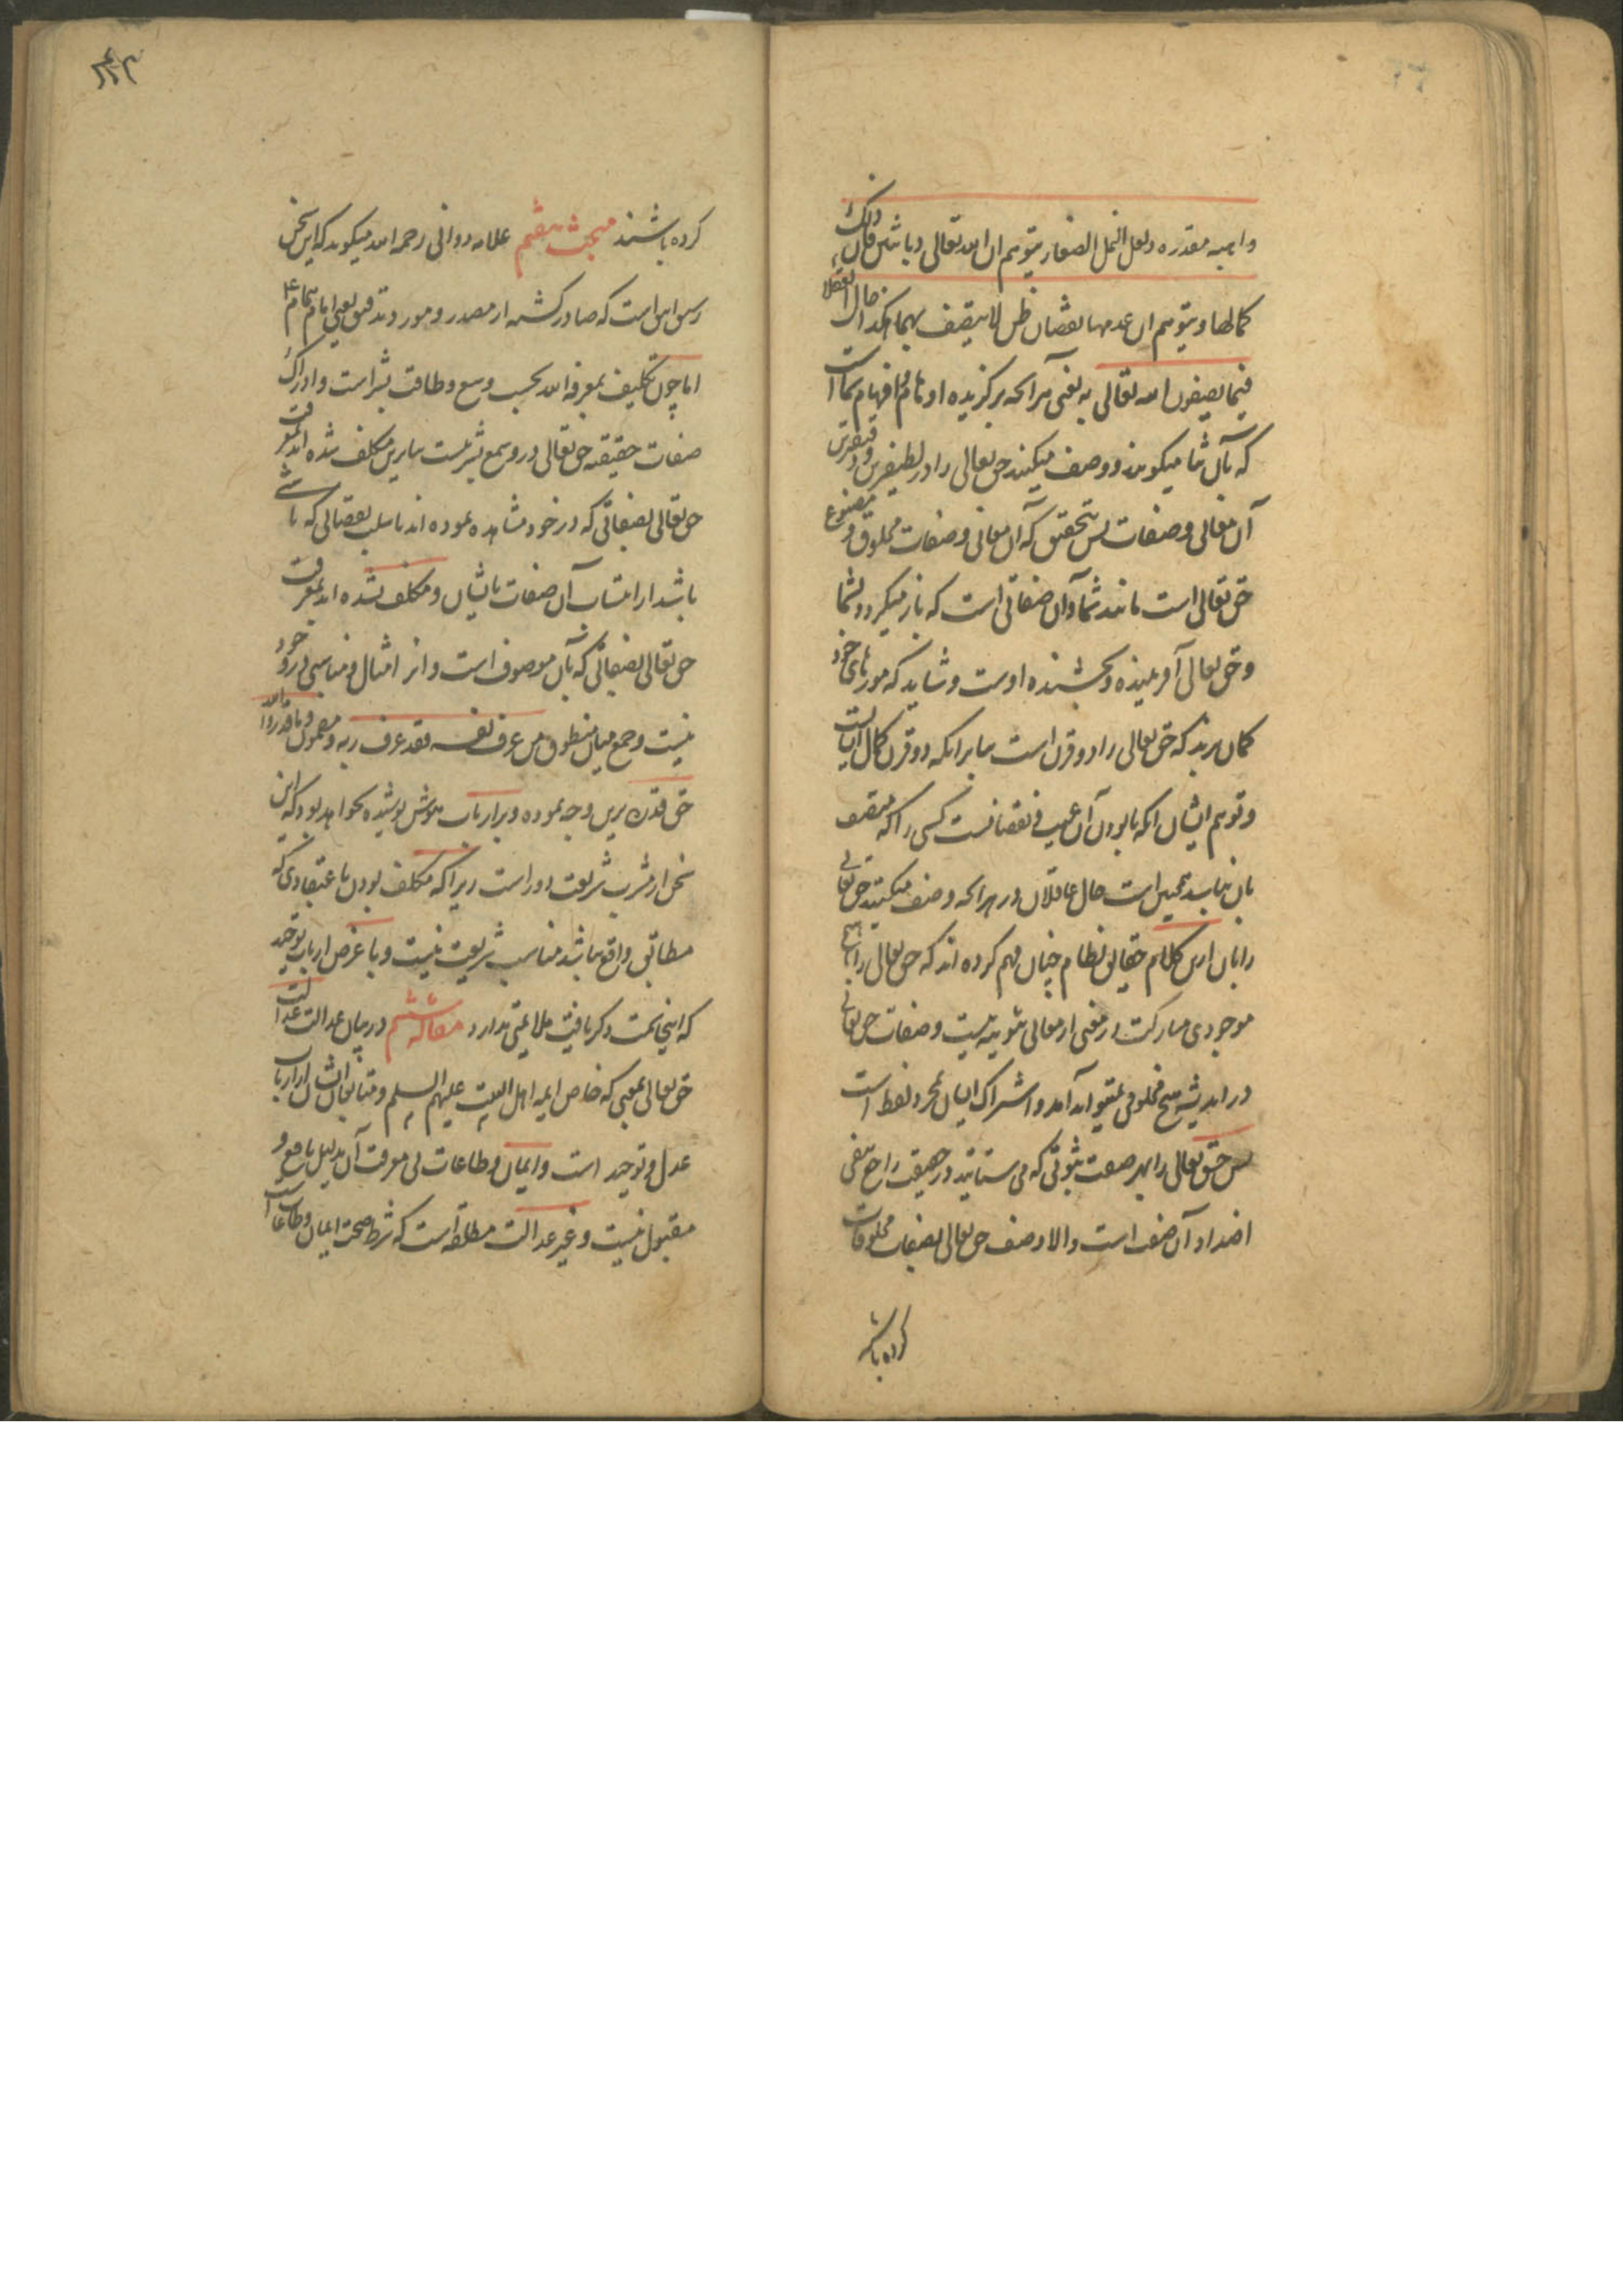 واهبه مقدره ولعل النمل الصغار یتوهم ان الله تعالی زبانتین فان ذلک
کمالها و یتوهم ان عدمها نقصان لمن لا یتصف بهما هکذا حال العقلا
فیما یصفون الله تعالی به یعنی هر آنچه برگزیده اوهام و افهام شما است
که بآن ثنا میگویند و وصف میکنند حق تعالی را در لطیفترین و دقیقترین
آن معانی و صفات پس بتحقیق که آن معانی و صفات مخلوق و مصنوع
حق تعالی است مانند شما و آن صفاتی است که باز میگردد بشما
و حق تعالی آفریننده و بخشنده اوست و شاید که مورهای خورد
گمان برند که حق تعالی را دو قرن است بنا بر آنکه دو قرن کمال ایشانست
و توهم ایشان آنکه نابودن آن عیب و نقصانست کسی را که متصف
بآن نباشد همچنین است حال عاقلان در هر آنچه وصف میکنند حق تعالی
را بآن از این کلام حقایق نظام چنان فهم کرده اند که حق تعالی را با هیچ
موجودی مشارکت در معنی از معانی ثبوتیه نیست و صفات حق تعالی
در اندیشه هیچ مخلوقی نمیتواند آمد و اشتراک ایشان بمجرد لفظ است
پس حق تعالی را بهر صفت ثبوتی که می ستایند در حقیقت راجع بنفی
اضداد آن صفت است والا وصف حق تعالی بصفات مخلوقات
کرده باشند
کرده باشند مبحث هفتم علامه دوانی رحمه الله میگوید که این سخن
رسن این است که صادر گشته از مصدر و مورد تدقیق یعنی امام همام ع
اما چون تکلیف بمعرفة الله بحسب وسع و طاقت بشر است و ادراک
صفات حقیقه حق تعالی در وسع بشر نیست بنابرین مکلف شده اند بمعرفت
حق تعالی بصفاتی که در خود مشاهده نموده اند با سلب نقصانی که ناشی
باشد از انتساب آن صفات بایشان و مکلف نشده اند بمعرفت
حق تعالی بصفاتی که بآن موصوف است و از امثال و مناسبی در و خود
نیست و جمع میان منطوق من عرف نفسه فقد عرف ربه و مضمون و ما قدروا الله
حق قدره برین وجه نموده و بر ارباب هوش پوشیده نخواهد بود که این
سخن از مشرب شریعت دور است زیرا که مکلف بودن باعتقادی که
مطابق واقع نباشد مناسب شریعت نیست و با غرض ارباب توحید
که اینجا سمت ذکر یافت ملایمتی ندارد مقاله ششم در بیان عدالت عدالت
حق تعالی بمعنی که خاص ایمه اهل البیت علیهم السلم و متابعان ایشان از ارباب
عدل و توحید است و ایمان و طاعات بی معرفت آن بدلیل نافع و
مقبول نیست و غیر عدالت مطلقه است که شرط صحت ایمان و طاعات است